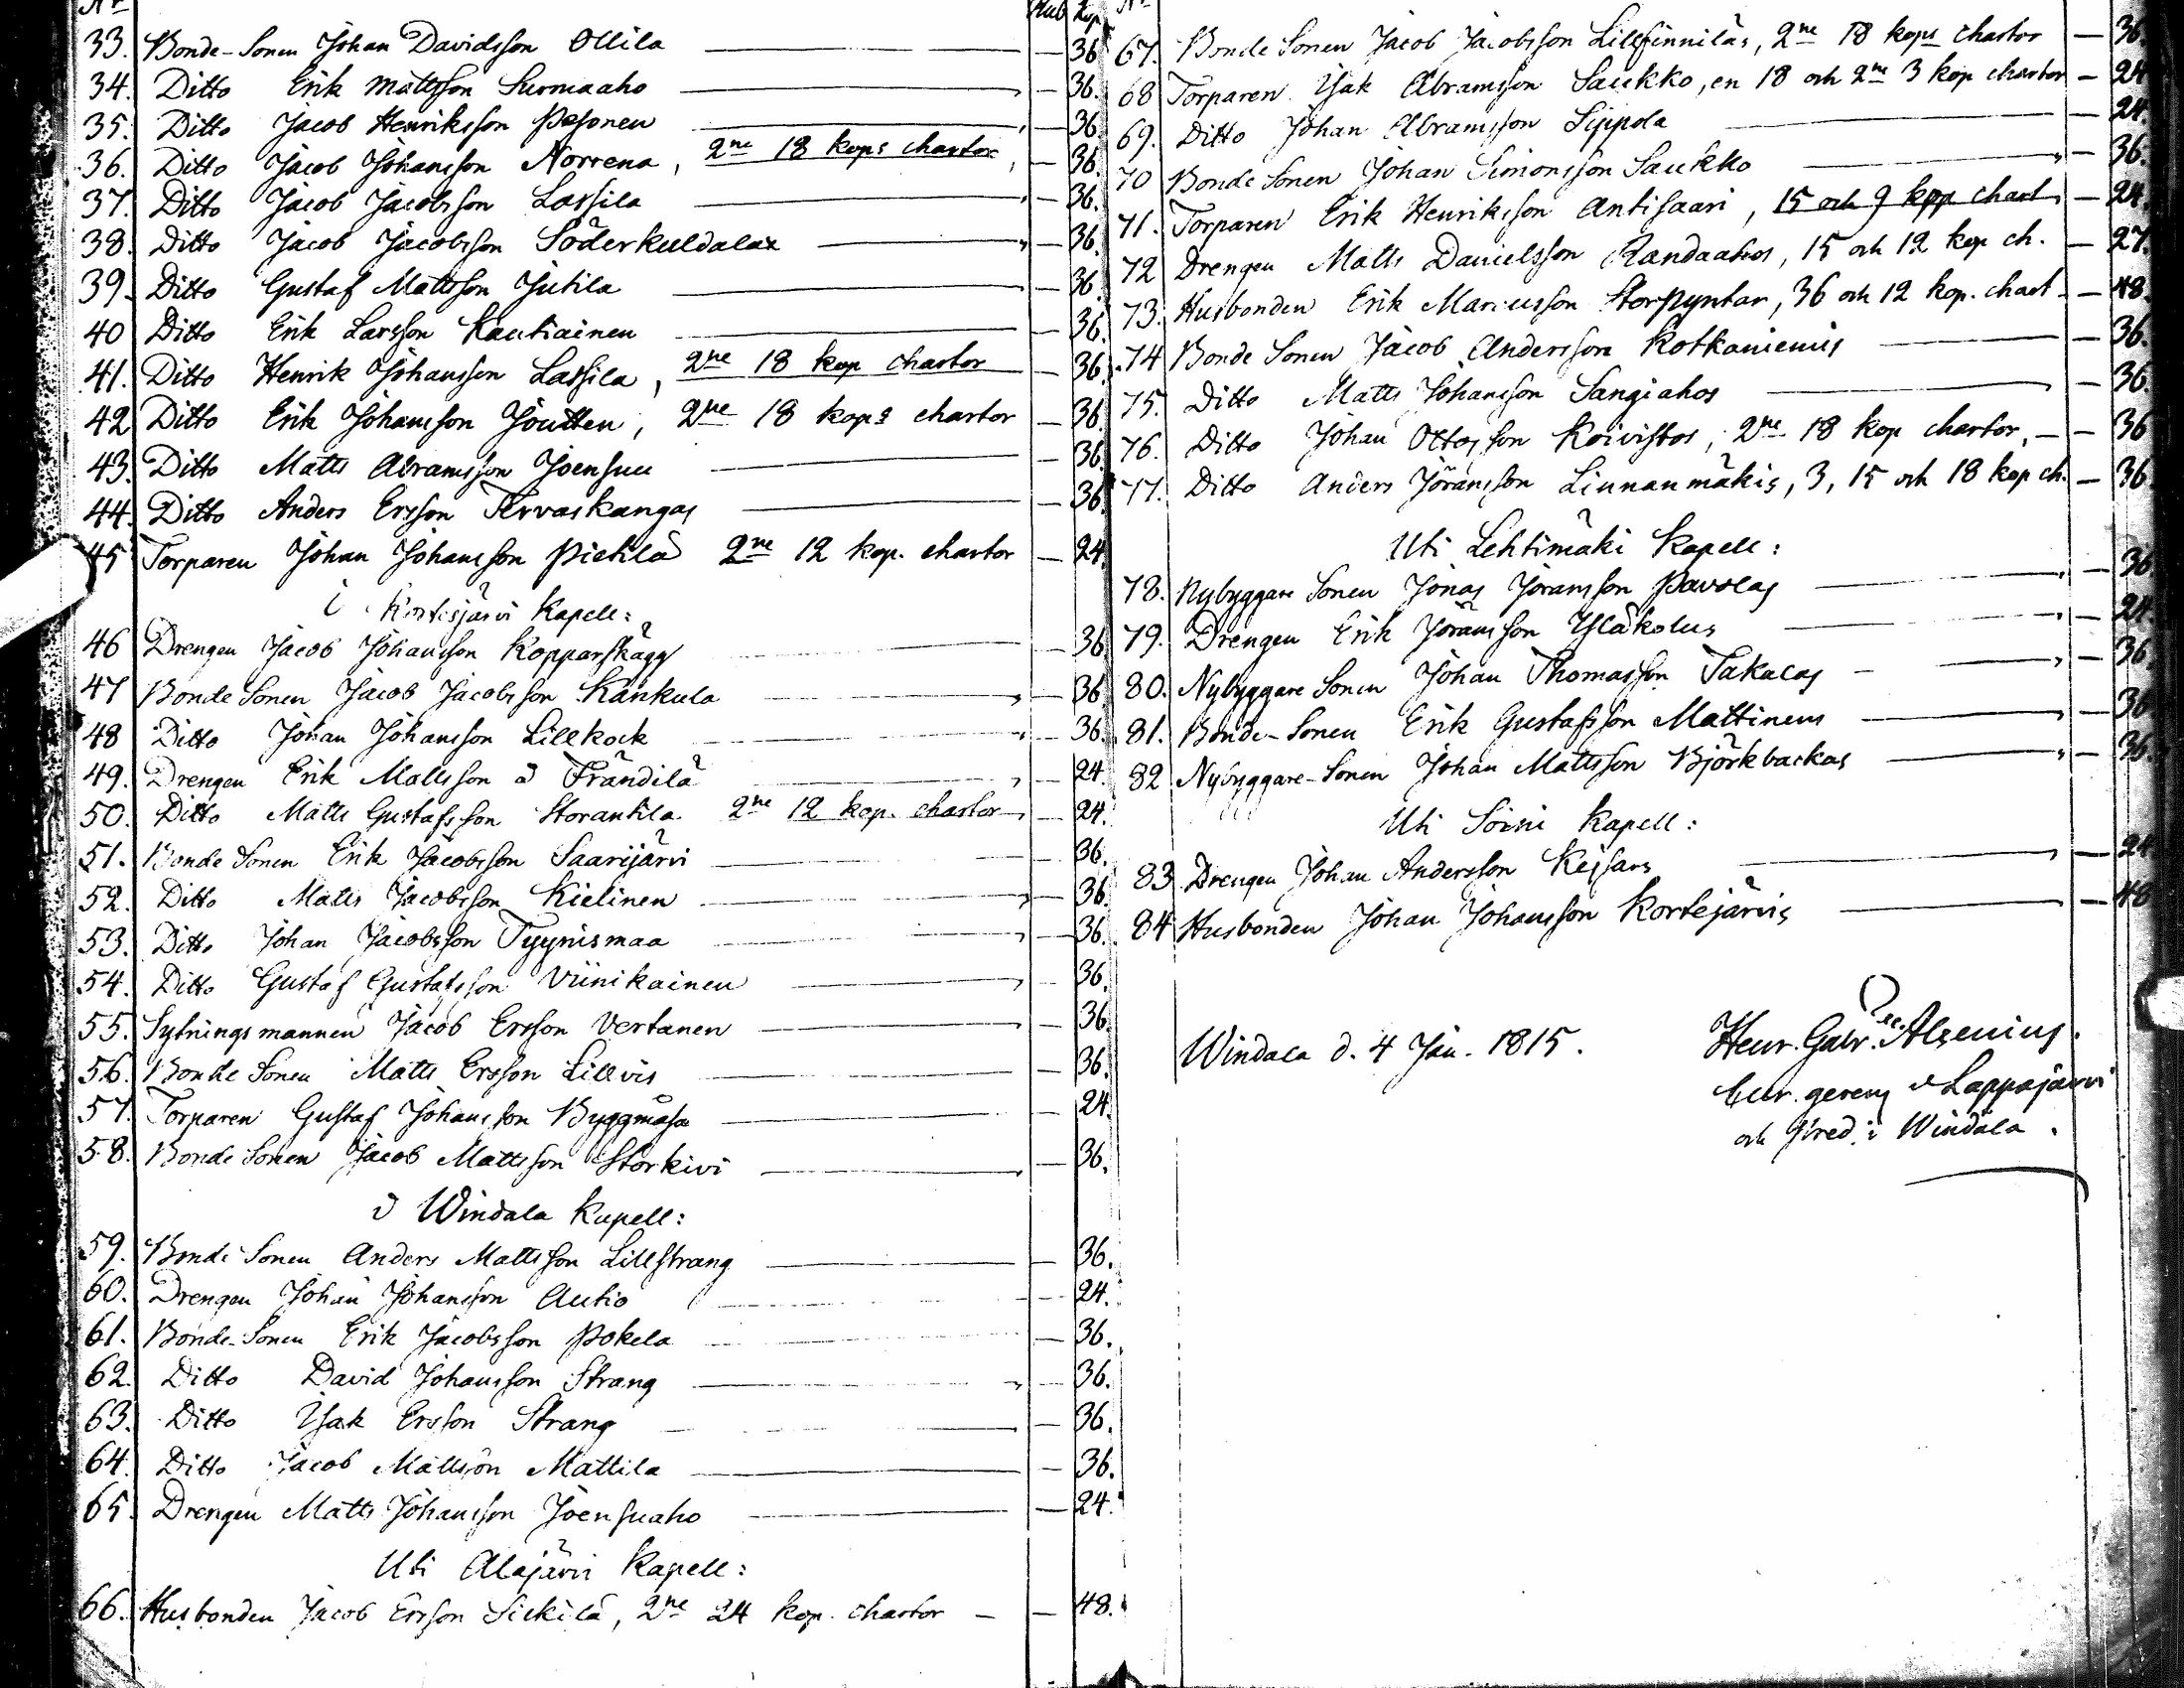 No Rub Kop
33. Bonde-Sonen Johan Davidsson Ollila — 36
34. Ditto Erik Mattsson Surmaaho — 36.
35. Ditto Jacob Henriksson Pesonen — 36
36. Ditto Jacob Johansson Norrena, 2ne 18 kops chartor — 36.
37. Ditto Jacob Jacobsson Lassila — 36.
38. Ditto Jacob Jacobsson Söderkuldalax — 36
39. Ditto Gustaf Mattsson Jutila — 36
40 Ditto Erik Larsson Kautiainen — 36.
41. Ditto Henrik Johansson Lassila, 2ne 18 kop chartor — 36.
42 Ditto Erik Johansson Joutten, 2ne 18 kops chartor — 36
43. Ditto Matts Abramsson Joensuu — 36
44. Ditto Anders Ersson Tervaskangas — 36
45 Torparen Johan Johansson Pietilä 2ne 12 kop. chartor — 24
i Kortesjärvi Kapell:
46 Drengen Jacob Johansson Kopparskägg — 36
47 Bonde Sonen Jacob Jacobsson Kankula — 36
48 Ditto Johan Johansson Lillkock — 36.
49. Drengen Erik Mattsson Frändilä — 24
50. Ditto Matts Gustafsson Storantila 2ne 12 kop. chartor — 24.
51. Bonde Sonen Erik Jacobsson Saarijärvi — 36.
52. Ditto Matts Jacobsson Kielinen — 36.
53. Ditto Johan Jacobsson Tyynismaa — 36.
54. Ditto Gustaf Gustafsson Viinikainen — 36.
55. Sytningsmannen Jacob Ersson Vertanen — 36.
56. Bonde Sonen Matts Ersson Lillvis — 36.
57. Torparen Gustaf Johansson Byggmäsa — 24.
58. Bonde Sonen Jacob Mattsson Storkivi — 36.
i Windala Kapell:
59. Bonde Sonen Anders Mattsson Lillstrang — 36.
60. Drengen Johan Johansson Autio — 24.
61. Bonde-Sonen Erik Jacobsson Pokela — 36.
62. Ditto David Johansson Strang — 36.
63. Ditto Isak Ersson Strang — 36.
64. Ditto Jacob Mattsson Mattila — 36.
65. Drengen Matts Johansson Joensuaho — 24.
Uti Alajärvi Kapell:
66. Husbonden Jacob Ersson Sickilä, 2ne 24 kop. chartor — 48.
No
67. Bonde Sonen Jacob Jacobsson Lillfinniläs, 2ne 18 kops chartor — 36.
68 Torparen Isak Abramsson Saukko, en 18 och 2ne 3 kop chartor — 24
69. Ditto Johan Abramsson Sippola — 24.
70 Bonde Sonen Johan Simonsson Saukko — 36.
71. Torparen Erik Henriksson Antisaari, 15 och 9 kop chart — 24.
72 Drengen Matts Danielsson Randaahos, 15 och 12 kop ch. — 27.
73. Husbonden Erik Marcusson Storpyntar, 36 och 12 kop. chart. — 48.
74 Bonde Sonen Jacob Andersson Kotkaniemis — 36.
75. Ditto Matts Johansson Sangiahos — 36.
76. Ditto Johan Ottosson Koivistos, 2ne 18 kop chartor, — 36
77. Ditto Anders Jöransson Linnanmäkis, 3, 15 och 18 kop ch. — 36
Uti Lehtimäki Kapell:
78. Nybyggare Sonen Jonas Jöransson Pavolas — 36
79. Drengen Erik Jöransson Yläkolus — 24.
80. Nybyggare Sonen Johan Thomasson Takalas — 36.
81. Bonde-Sonen Erik Gustafsson Mattinens — 36
82 Nybyggare-Sonen Johan Mattsson Björkbackas — 36.
Uti Soini Kapell:
83 Drengen Johan Andersson Kejsars — 24
84 Husbonden Johan Johansson Kortejärvis — 48
Windala d. 4 Jan. 1815.
Henr. Gabr. Alcenius.
Cur. gerens i Lappajärvi
och Pred. i Windala.